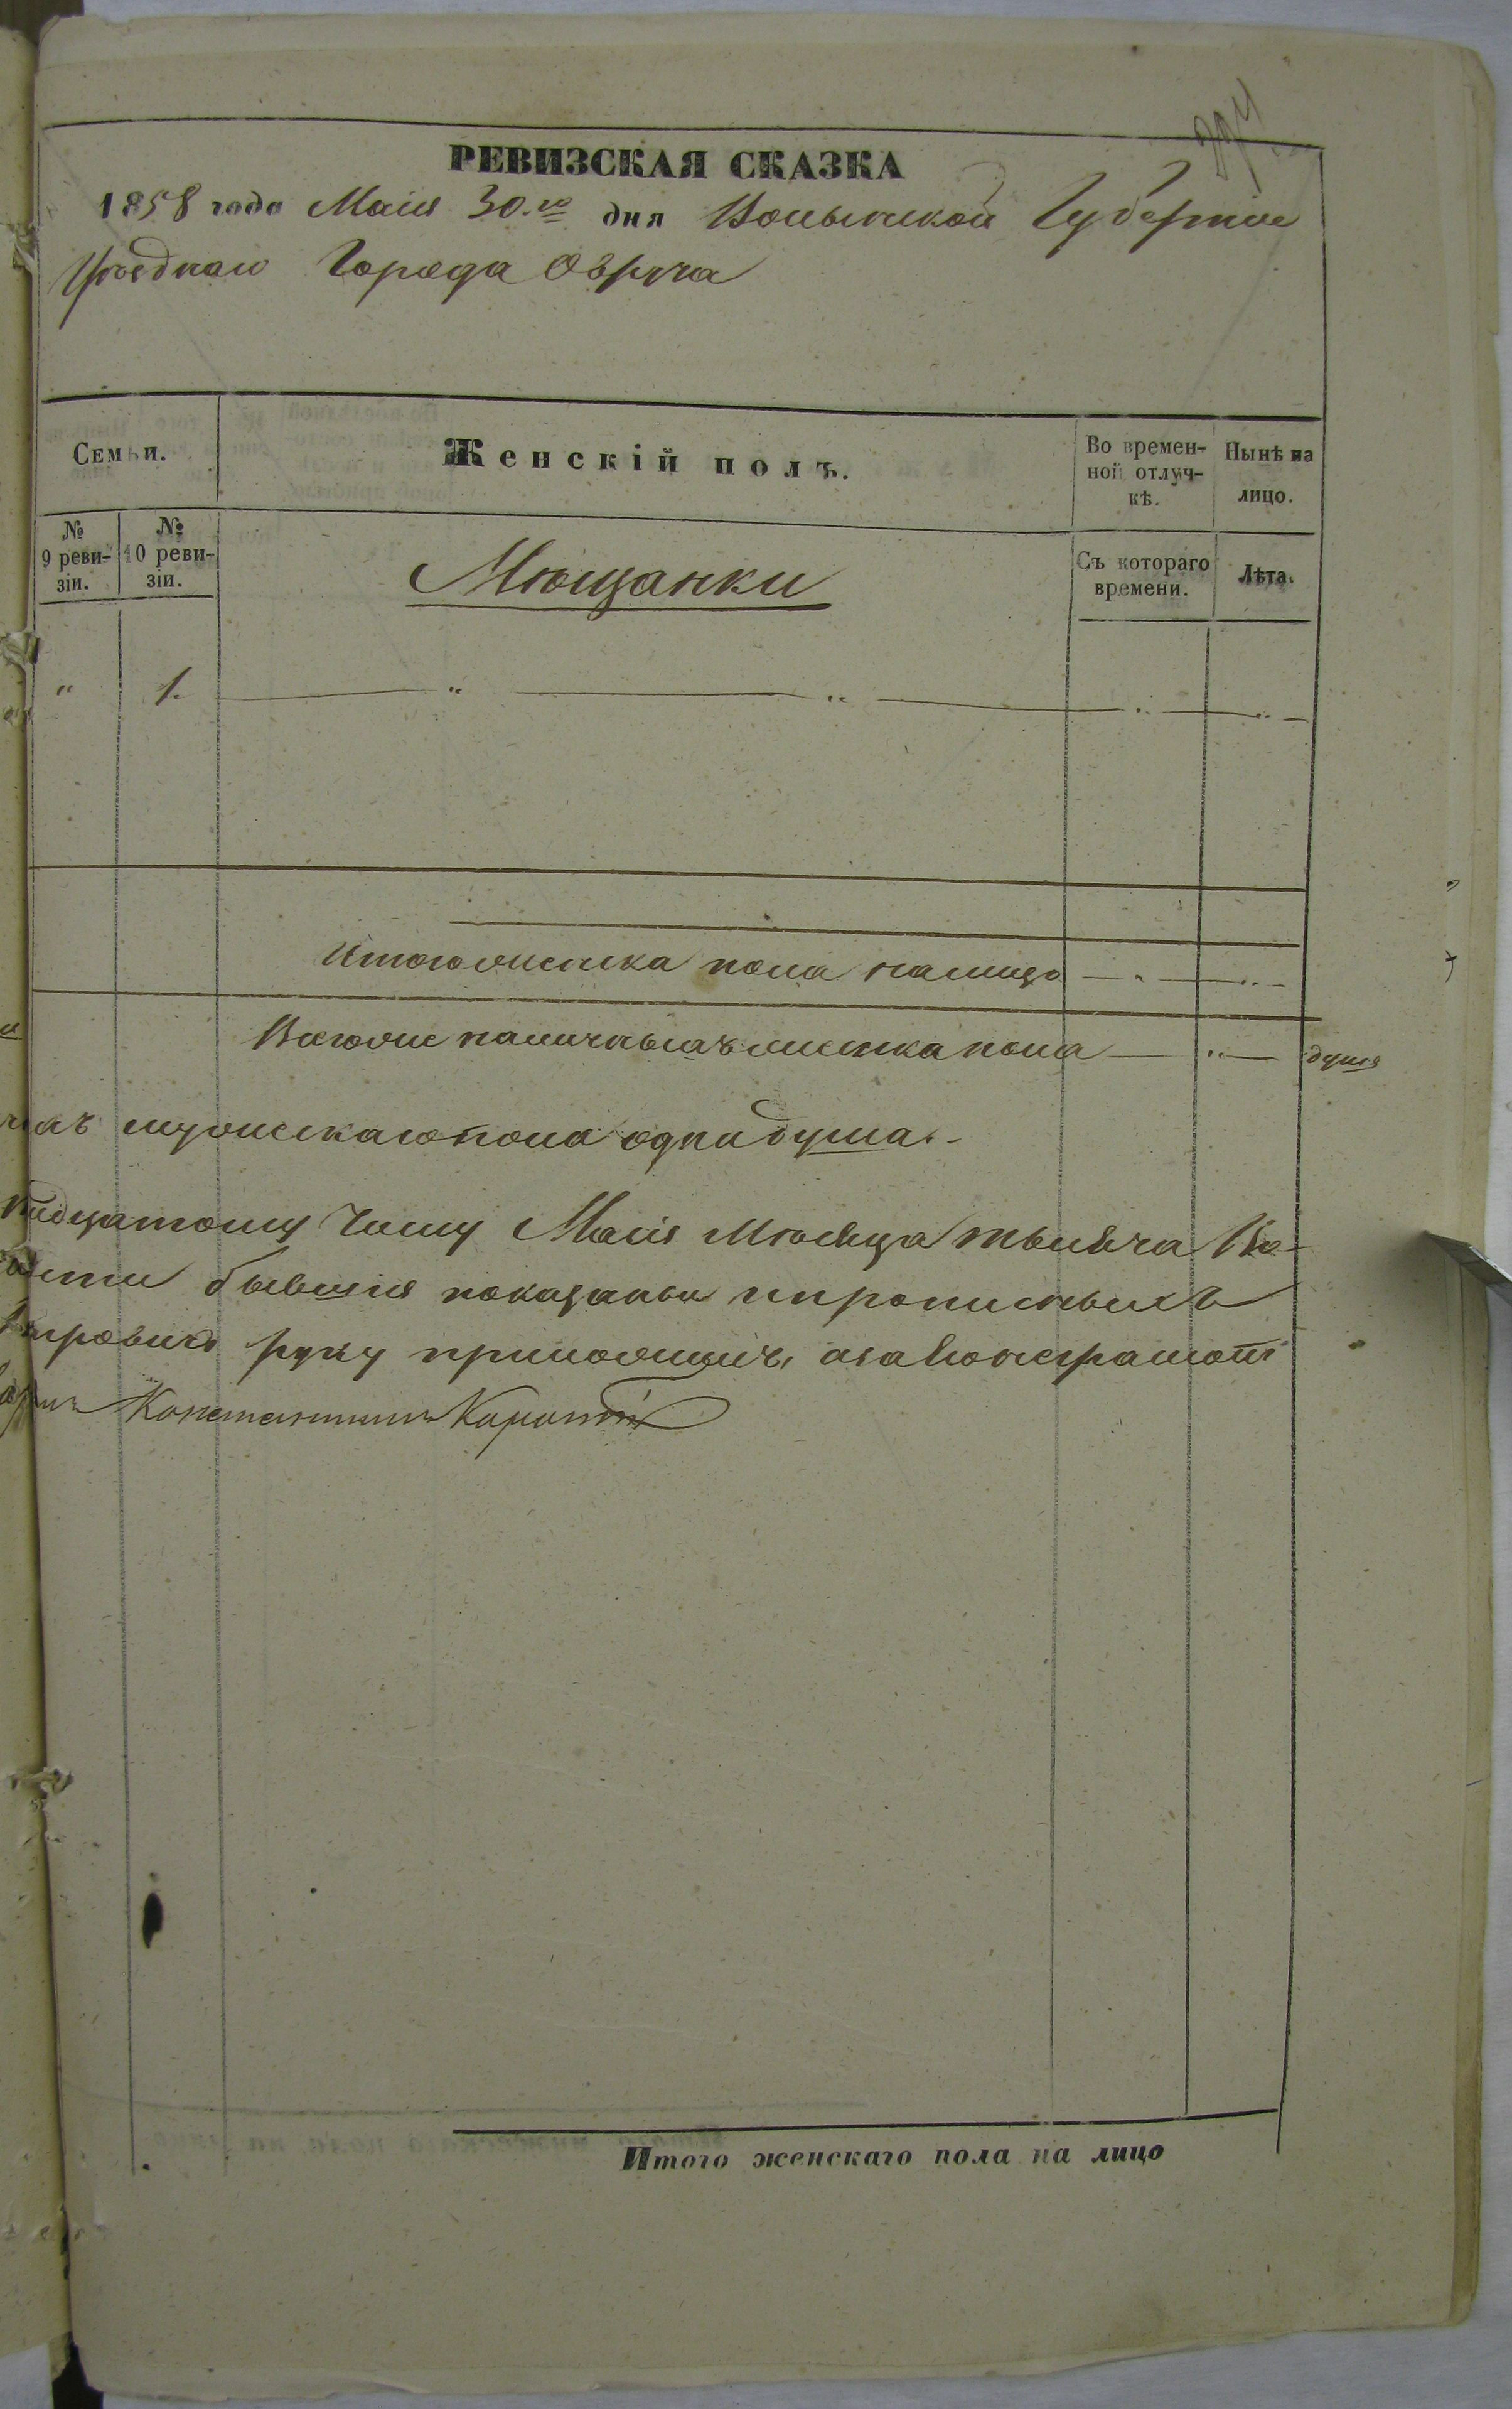 РЕВИЗСКАЯ СКАЗКА
1858 года Маія 30.го дня Волынской Губерніи
Уѣзднаго Города Овруча
Семьи.
Женскій полъ.
Во временной отлучкѣ.
Нынѣ на лицо.
№ 9 ревизіи.
№ 10 ревизіи.
Мѣщанки
Съ котораго времени.
Лѣта.
" 1. " " " "
Итого женска пола налицо " "
Всего же наличныхъ женска пола " душъ
мужескаго пола одна душа.
числу Маія Мѣсяца тысяча
бывшія показаны и прописныхъ
руку приложилъ, а за неграмот
Константинъ
Итого женскаго пола на лицо